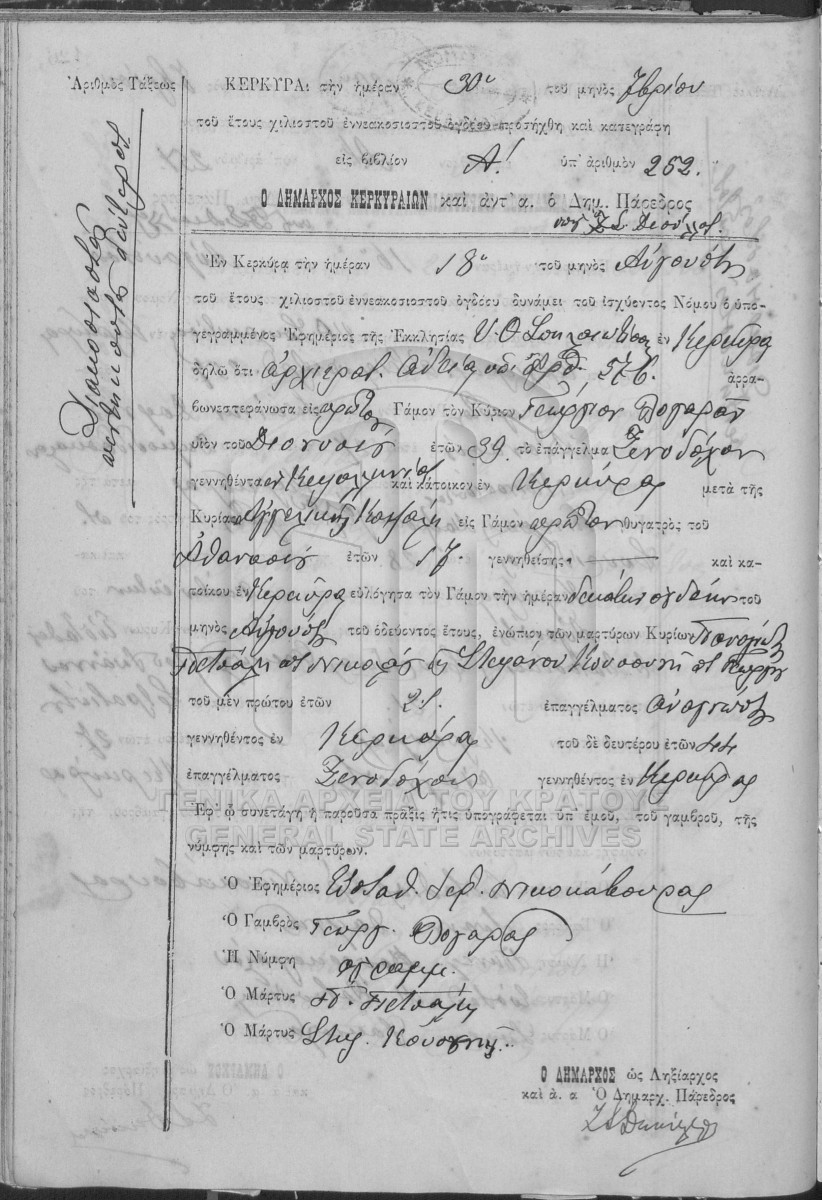 Ἀριθμὸς Τάξεως
Διακόσια
πεντήκοντα δεύτερος
ΚΕΡΚΥΡΑ: τὴν ἡμέραν 30ὴ τοῦ μηνὸς 7βρίου
τοῦ ἔτους χιλιοστοῦ ἐννεακοσιοστοῦ ὀγδόου προσήχθη καὶ κατεγράφη
εἰς βιβλίον Α! ὑπ' ἀριθμὸν 252.
Ο ΔΗΜΑΡΧΟΣ ΚΕΡΚΥΡΑΙΩΝ καὶ ἀντ' α. ὁ Δημ. Πάρεδρος
Ἐν Κερκύρᾳ τὴν ἡμέραν 18η τοῦ μηνὸς Αὐγούστου
τοῦ ἔτους χιλιοστοῦ ἐννεακοσιοστοῦ ὀγδόου δυνάμει τοῦ ἰσχύοντος Νόμου ὁ ὑπο-
γεγραμμένος Ἐφημέριος τῆς Ἐκκλησίας Υ. Θ. Σπηλαιωτίσσης ἐν Κερκύρᾳ
δηλῶ ὅτι ἀρχιερατ. ἀδείᾳ ἀρρα-
βωνεστεφάνωσα εἰς πρῶτον Γάμον τὸν Κύριον Γεώργιον
υἱὸν τοῦ Διονυσίου ἐτῶν 39 τὸ ἐπάγγελμα Ξενοδόχον
γεννηθέντα ἐν Κεφαλληνίᾳ καὶ κάτοικον ἐν Κερκύρας μετὰ τῆς
Κυρίας Ἀγγελικῆς εἰς Γάμον πρῶτον θυγατρὸς τοῦ
Ἀθανασίου ἐτῶν 17. γεννηθείσης καὶ κα-
τοίκου ἐν Κερκύρᾳ εὐλόγησα τὸν Γάμον τὴν ἡμέραν δεκάτην ὀγδόην τοῦ
μηνὸς Αὐγούστου τοῦ ὁδεύοντος ἔτους, ἐνώπιον τῶν μαρτύρων Κυρίων Παναγιώτου
Πετσάλη τοῦ Νικολάου Στεφάνου τοῦ Γεωργίου
τοῦ μὲν πρώτου ἐτῶν 21. ἐπαγγέλματος ἀναγνώστου
γεννηθέντος ἐν Κερκύρᾳ τοῦ δὲ δευτέρου ἐτῶν 44
ἐπαγγέλματος Ξενοδόχου γεννηθέντος ἐν Κερκύρας
ΓΕΝΙΚΑ ΑΡΧΕΙΑ ΤΟΥ ΚΡΑΤΟΥΣ
GENERAL STATE ARCHIVES
Ἐφ' ᾧ συνετάγη ἡ παροῦσα πρᾶξις ἥτις ὑπογράφεται ὑπ' ἐμοῦ, τοῦ γαμβροῦ, τῆς
νύμφης καὶ τῶν μαρτύρων.
Ὁ Ἐφημέριος Εὐσταθ. Ἱερ. Νικοκάβουρας
Ὁ Γαμβρὸς Γεώργ.
Ἡ Νύμφη ἀγράμμ.
Ὁ Μάρτυς Π. Πετσάλης
Ὁ Μάρτυς Στεφ.
Ο ΔΗΜΑΡΧΟΣ ὡς Ληξίαρχος
καὶ ἀ. α Ὁ Δημαρχ. Πάρεδρος